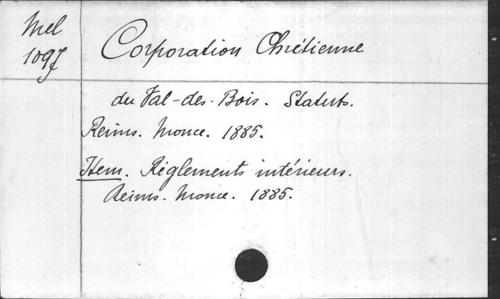 Mel
1097
Corporation Chrétienne
du Val-des-Bois. Statuts.
Reims. Monce. 1885.
Item. Règlements intérieurs.
Reims. Monce. 1885.